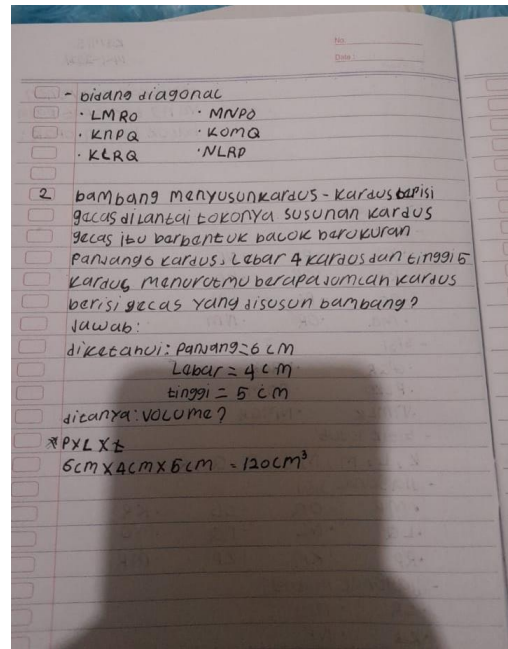 No.
Date:
- bidang diagonal
· LMRO · MNPO
· KNPQ · KOMQ
· KLRQ · NLRP
2 bambang menyusunkardus-kardus berisi
gelas dilantai tokonya susunan kardus
gelas itu berbentuk balok berukuran
Panjang 6 kardus, Lebar 4 kardus dan tinggi 5
kardus menurutmu berapa jumlah kardus
berisi gelas yang disusun bambang?
Jawab:
diketahui: Panjang = 6 cm
Lebar = 4 cm
tinggi = 5 cm
ditanya: volume?
* P x L x t
6cm x 4cm x 5cm = 120cm³